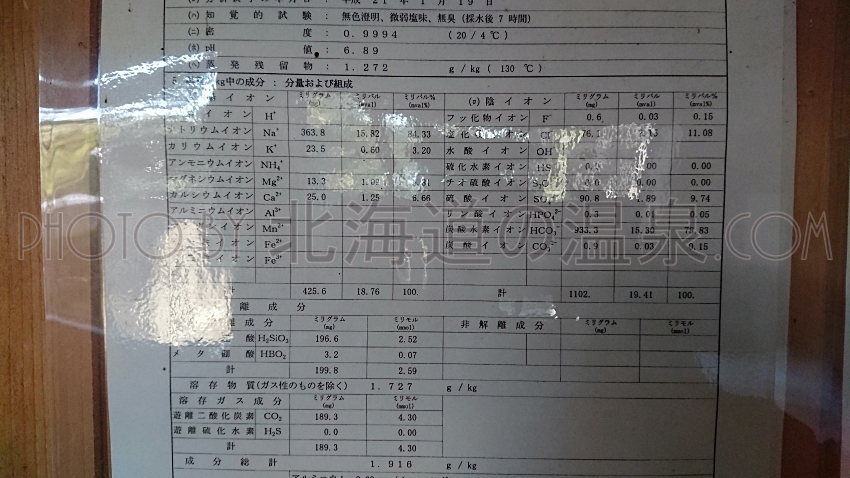 平成 21年 1月 19日
(ハ) 知覚的試験 : 無色澄明、微弱塩味、無臭 (採水後 7 時間)
(ニ) 密度 : 0.9994 (20/4℃)
(ホ) pH値 : 6.89
(ヘ) 蒸発残留物 : 1.272 g/kg (130℃)
kg中の成分 : 分量および組成
イオン ミリグラム (mg) ミリバル (mval) ミリバル% (mval%) (ロ) 陰イオン ミリグラム (mg) ミリバル (mval) ミリバル% (mval%)
イオン H⁺ フッ化物イオン F⁻ 0.6 0.03 0.15
ナトリウムイオン Na⁺ 363.8 15.82 84.33 塩化イオン Cl⁻ 11.08
カリウムイオン K⁺ 23.5 0.60 3.20 水酸イオン OH
アンモニウムイオン NH₄⁺ 硫化水素イオン HS 0.00
マグネシウムイオン Mg²⁺ 13.3 チオ硫酸イオン 0.00 0.00
カルシウムイオン Ca²⁺ 25.0 1.25 6.66 硫酸イオン SO₄ 90.8 1.89 9.74
アルミニウムイオン Al³⁺ リン酸イオン HPO₄²⁻ 0.3 0.01 0.05
イオン Mn²⁺ 炭酸水素イオン HCO₃⁻ 933.3 15.30 78.83
イオン Fe²⁺ 炭酸イオン CO₃²⁻ 0.9 0.03 0.15
イオン Fe³⁺
PHOTO BY 北海道の温泉.COM
計 425.6 18.76 100. 計 1102. 19.41 100.
離成分
離成分 ミリグラム (mg) ミリモル (mmol) 非解離成分 ミリグラム (mg) ミリモル (mmol)
酸 H₂SiO₃ 196.6 2.52
メタ硼酸 HBO₂ 3.2 0.07
計 199.8 2.59
溶存物質(ガス性のものを除く) 1.727 g/kg
溶存ガス成分 ミリグラム (mg) ミリモル (mmol)
遊離二酸化炭素 CO₂ 189.3 4.30
遊離硫化水素 H₂S 0.0 0.00
計 189.3 4.30
成分総計 1.916 g/kg